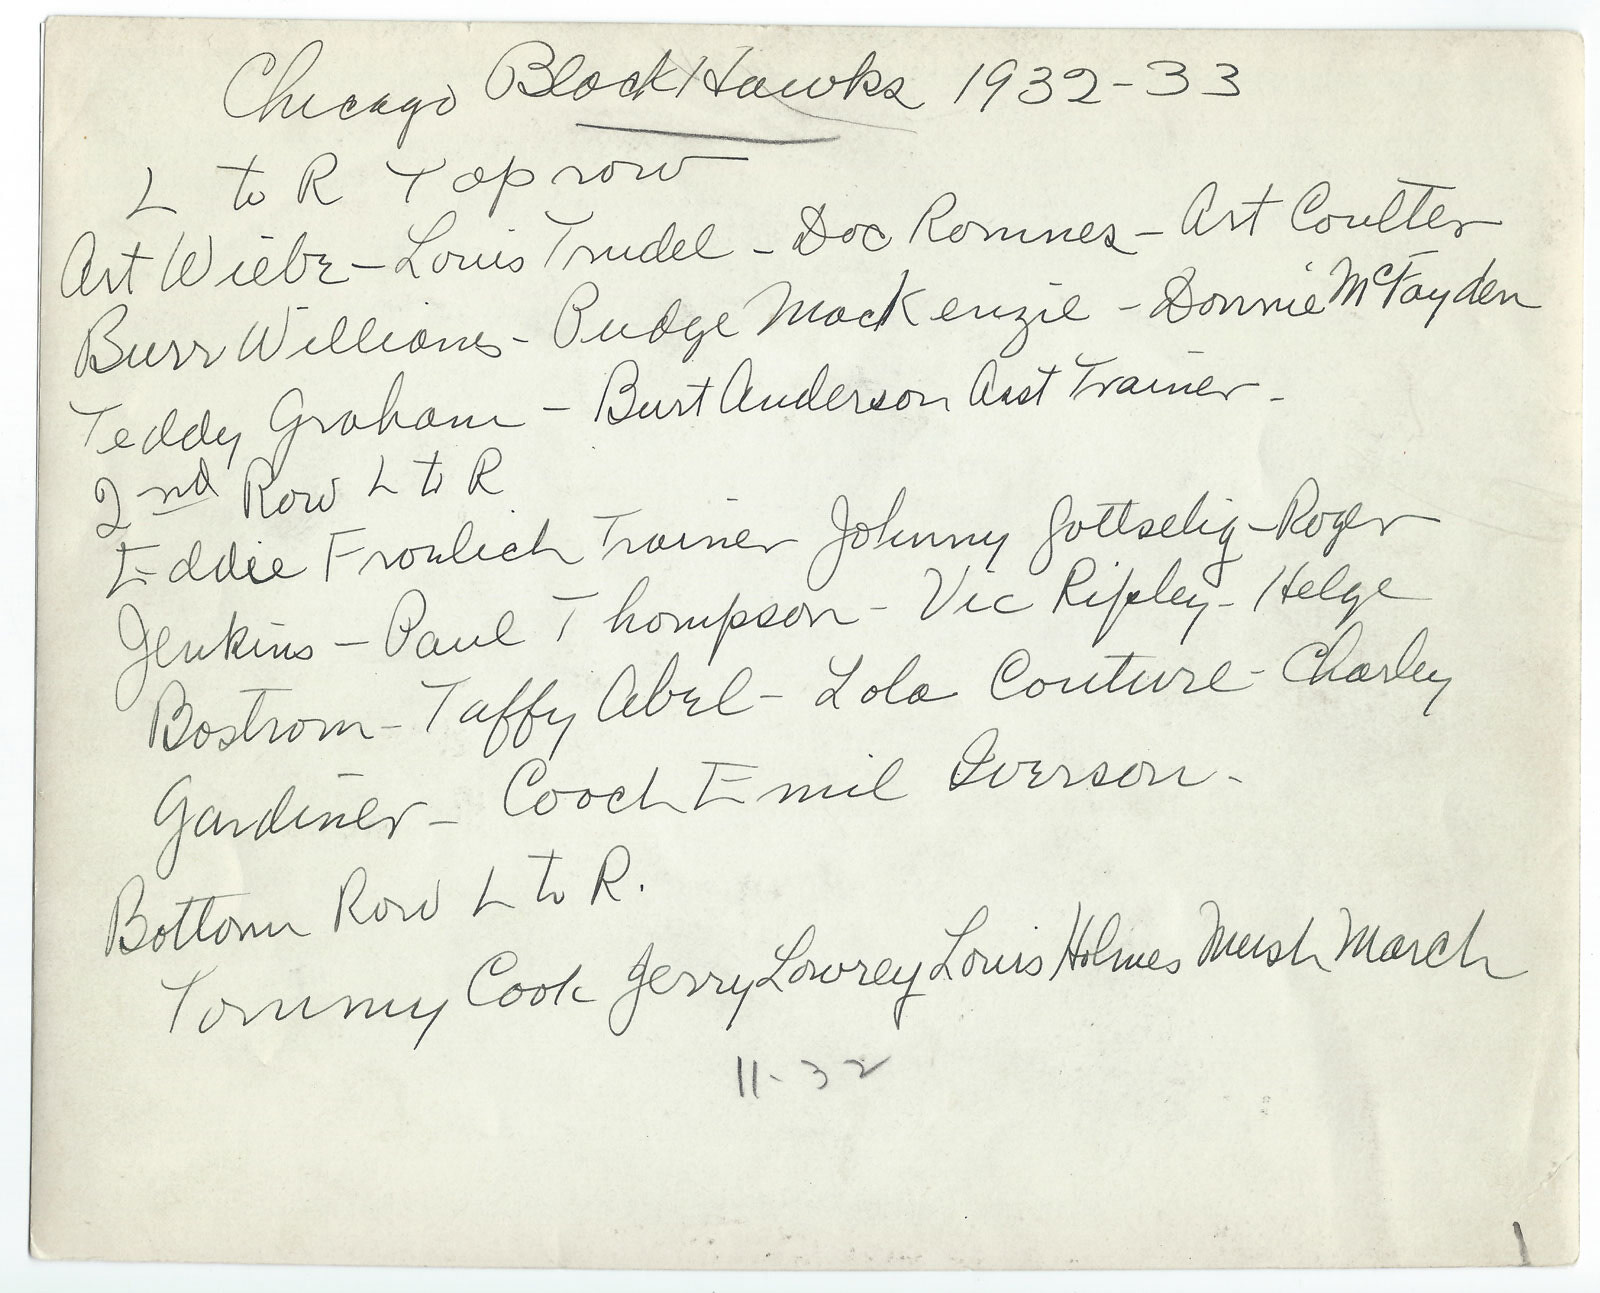 Chicago Black Hawks 1932-33
L to R Top row
Art Wiebe - Louis Trudel - Doc Romnes - Art Coulter
Burr Williams - Pudge MacKenzie - Donnie McFayden
Teddy Graham - Burt Anderson Asst Trainer -
2nd Row L to R
Eddie Froulich Trainer Johnny Gottselig - Roger
Jenkins - Paul Thompson - Vic Ripley - Helge
Bostrom - Taffy Abel - Lola Couture - Charley
Gardiner - Coach Emil Iverson -
Bottom Row L to R.
Tommy Cook Jerry Lowrey Louis Holmes Mush March
11-32